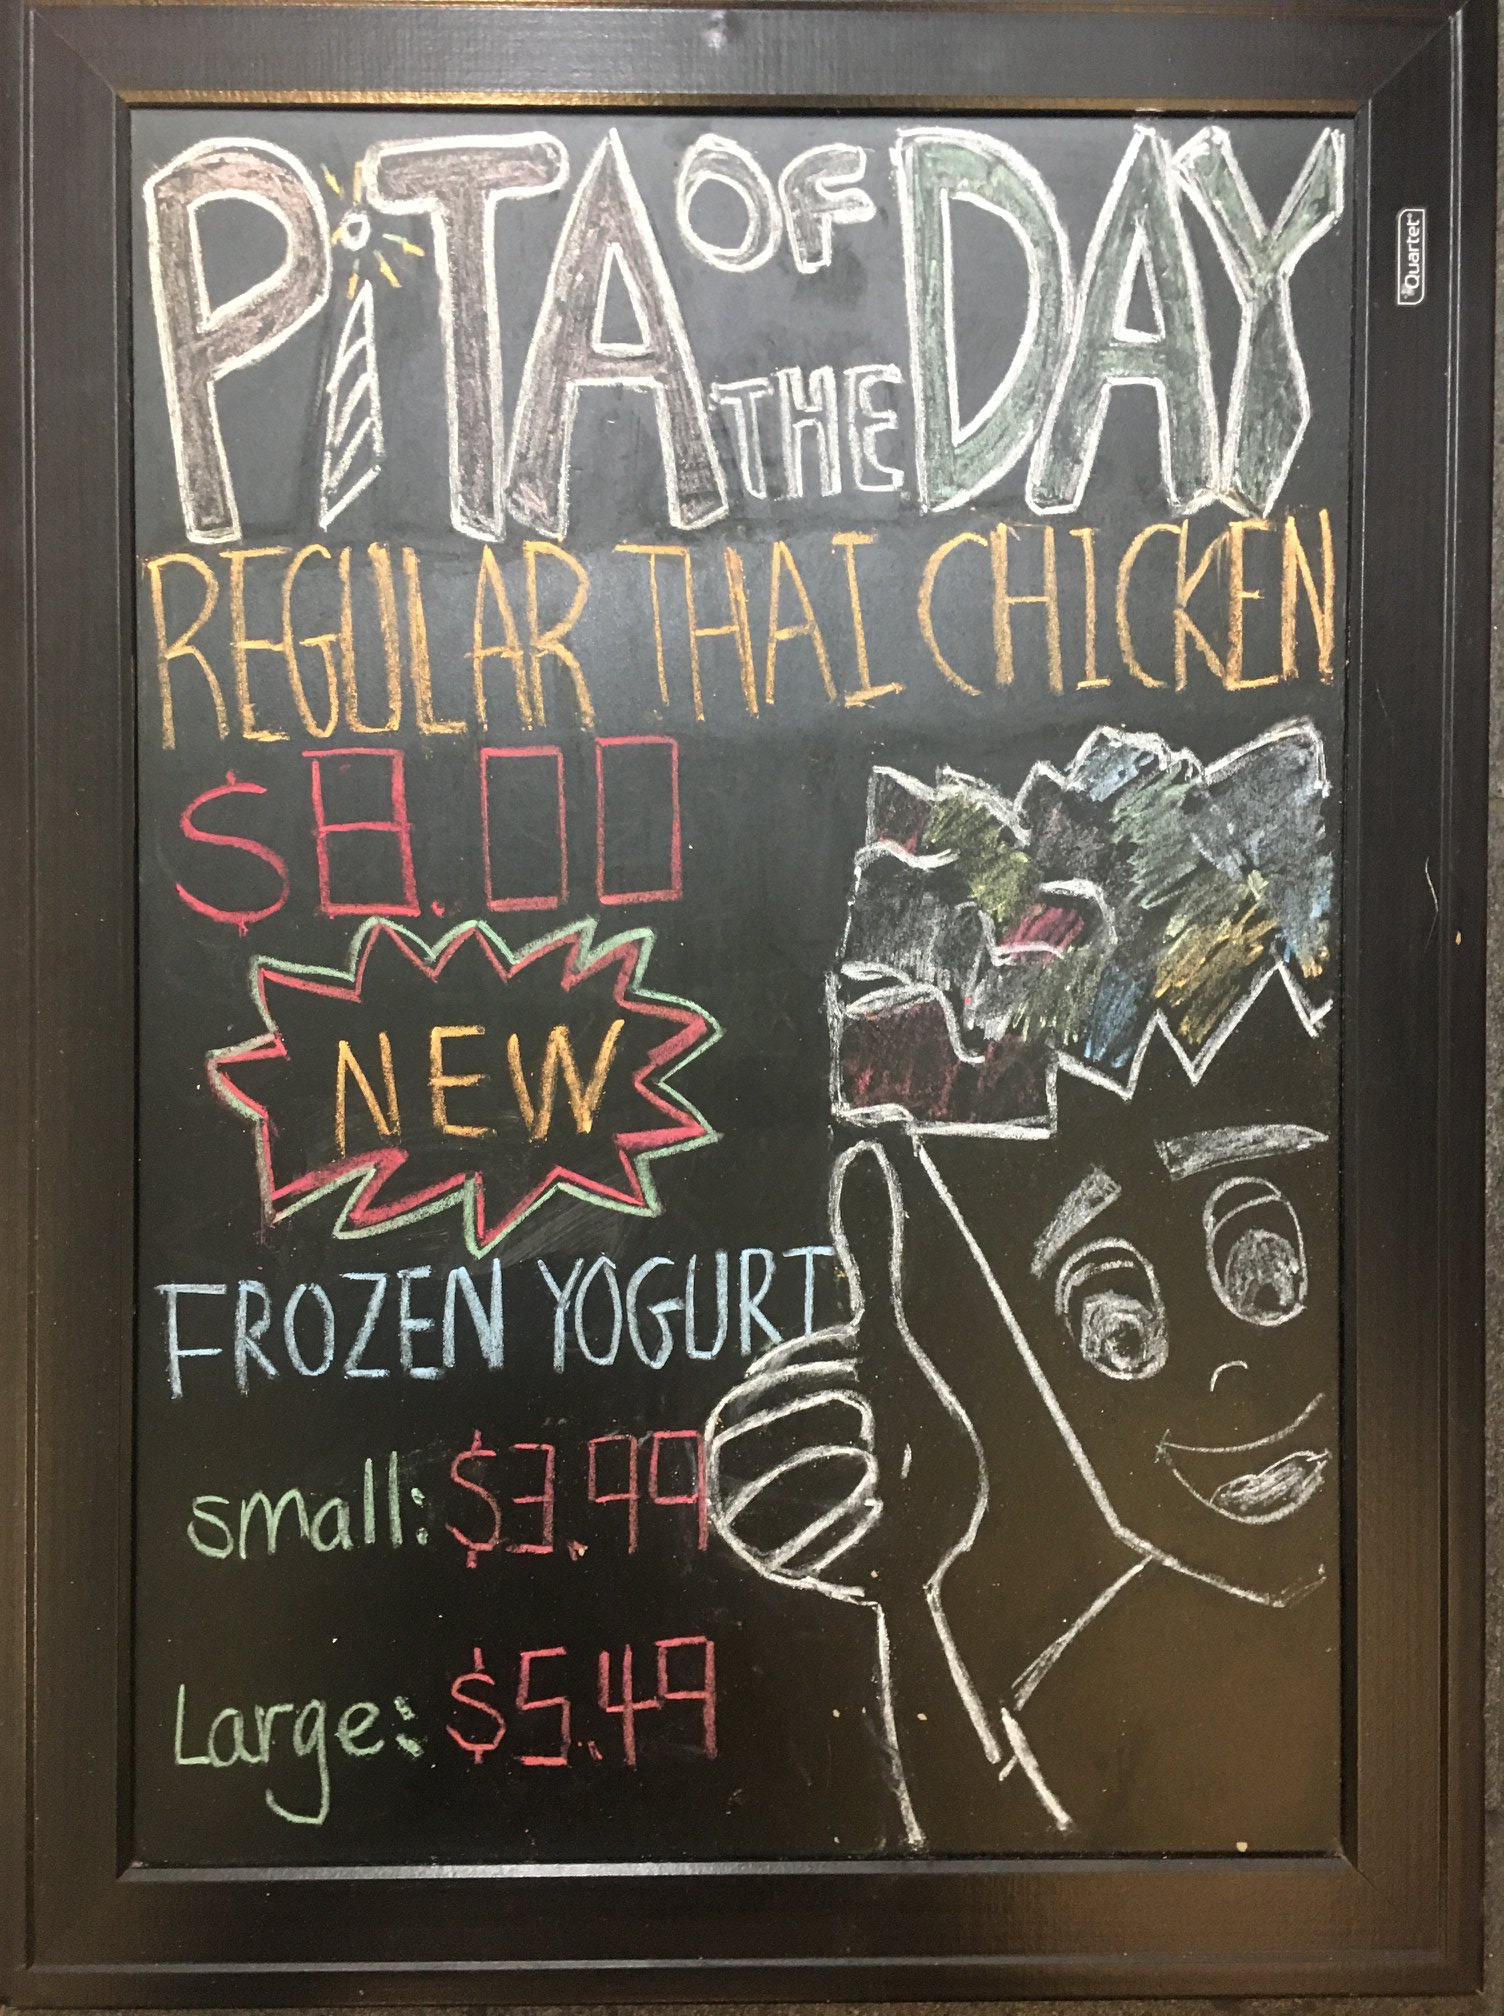 PiTA OF THE DAY
REGULAR THAI CHICKEN
$8.00
NEW
FROZEN YOGURT
small: $3.99
Large: $5.49
Quartet®